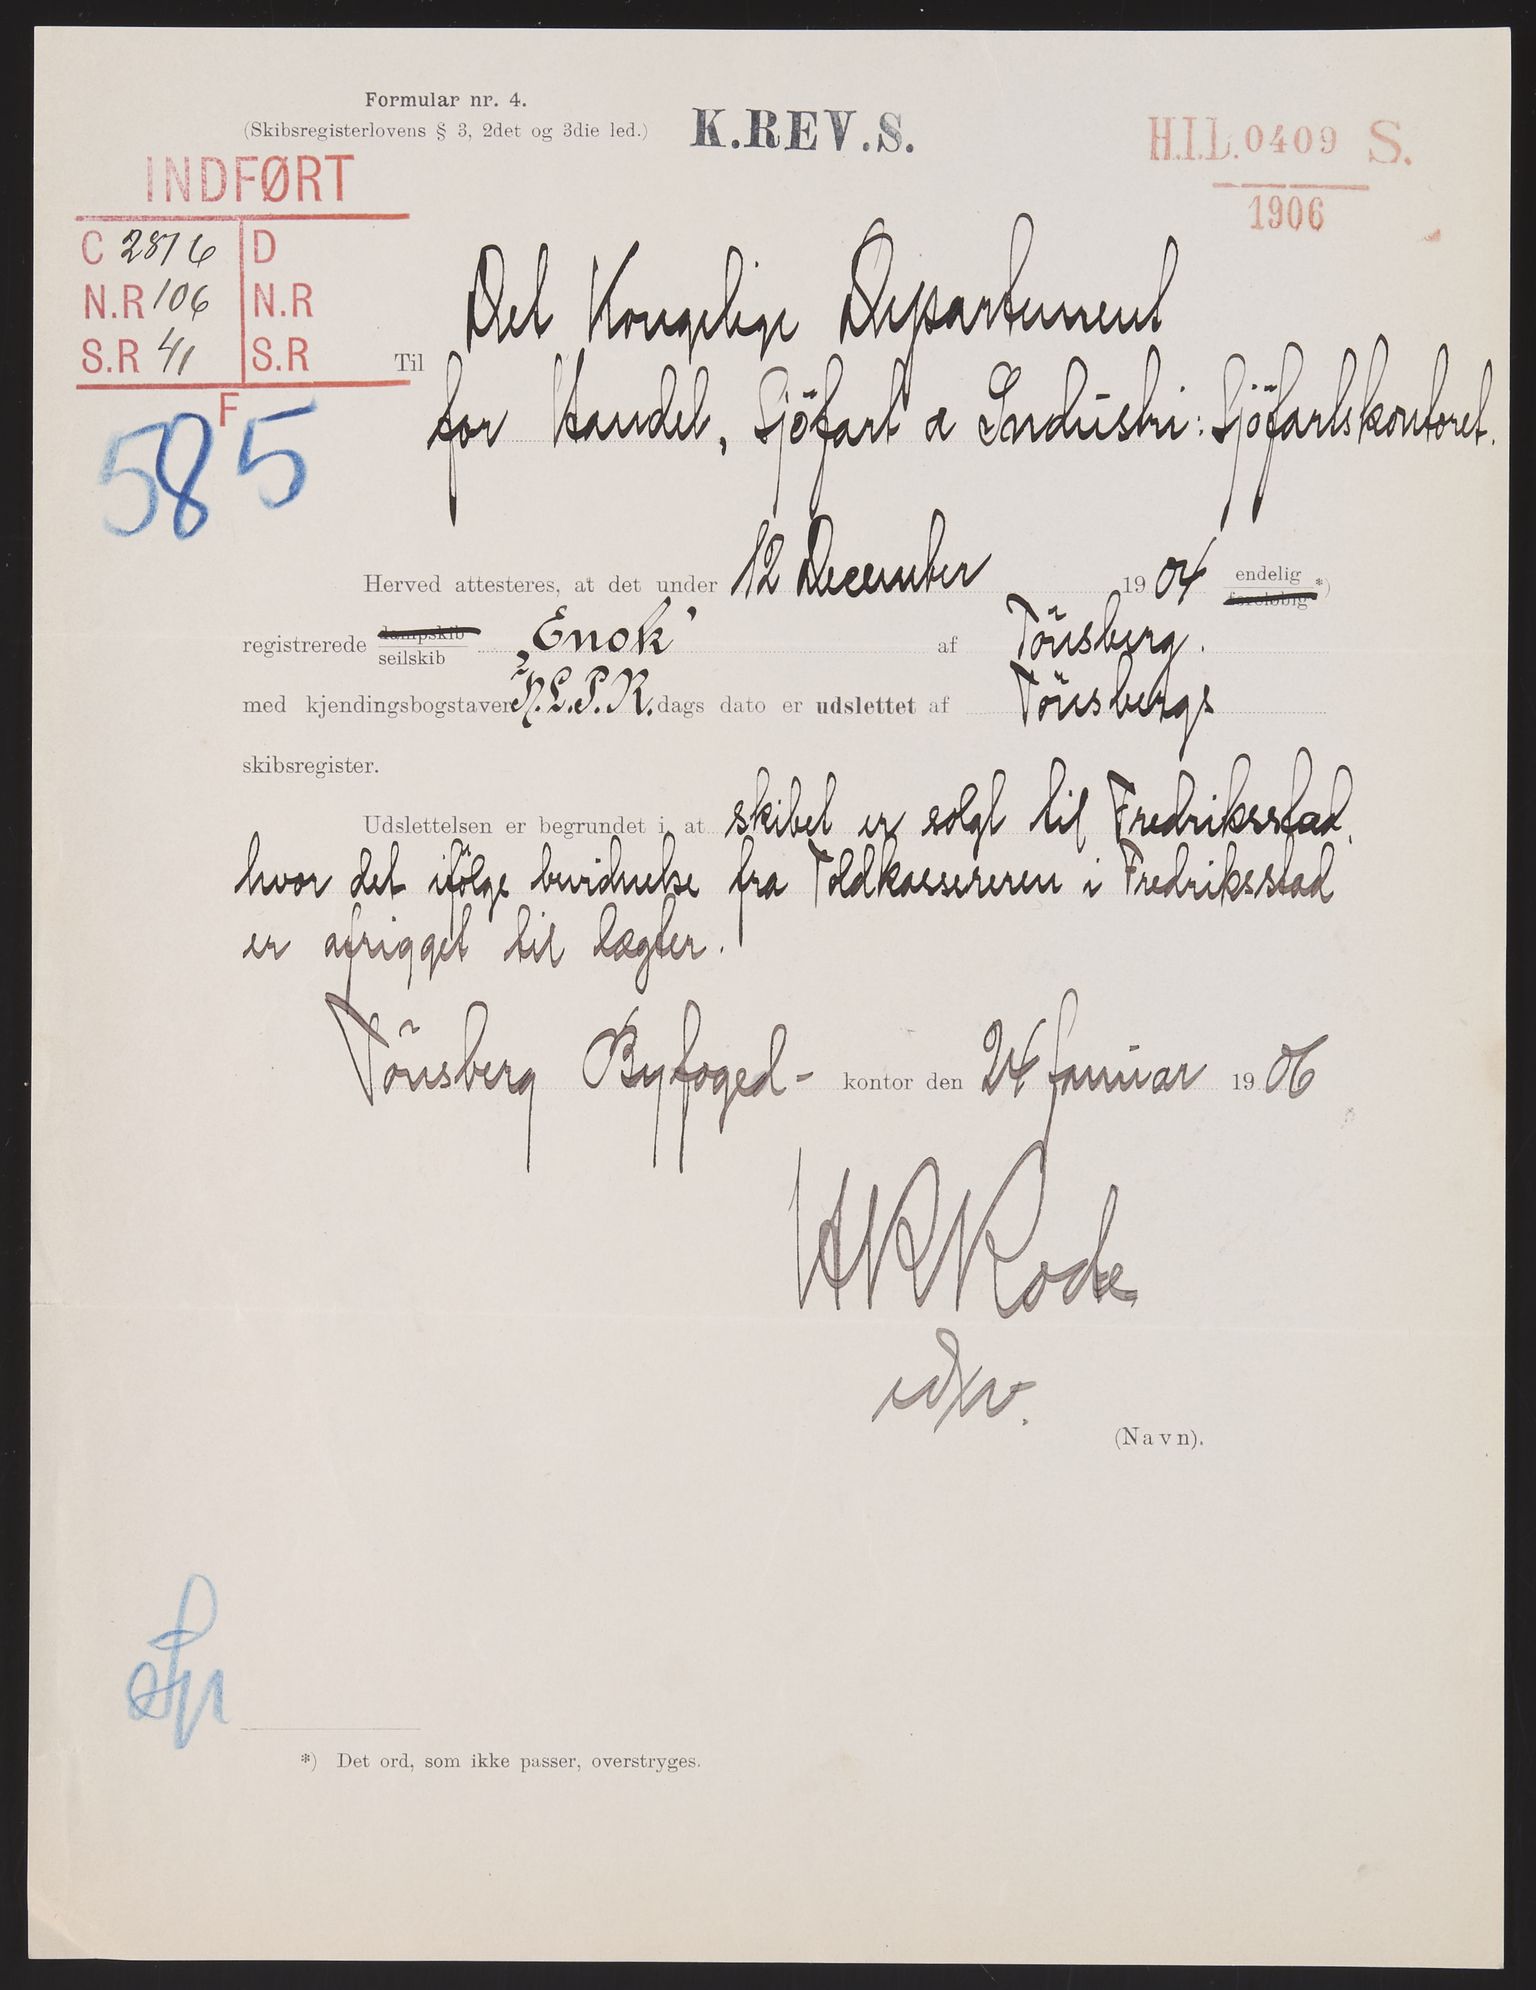 Formular nr. 4.
(Skibsregisterlovens § 3, 2det og 3die led.)
K.REV.S.
H.I.L. 0409 S.
1906
INDFØRT
C 2816 D
N.R 106 N.R
S.R 41 S.R
F
585
Til Det Kongelige Departement
for Handel, Sjöfart & Industri: Sjöfartskontoret.
Herved attesteres, at det under 12 December 1904 endelig foreløbig *)
registrerede dampskib seilskib „Enok" af Tönsberg.
med kjendingsbogstaver H.L.P.R. dags dato er udslettet af Tönsbergs
skibsregister.
Udslettelsen er begrundet i, at skibet er solgt til Fredriksstad,
hvor det ifölge bevidnelse fra Toldkassereren i Fredriksstad
er afrigget til lægter.
Tönsberg Byfoged- kontor den 24 Januar 1906
HRRode
(Navn).
*) Det ord, som ikke passer, overstryges.